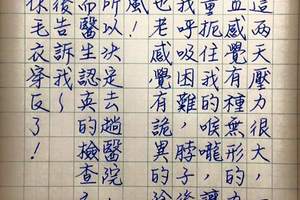 這兩天壓力很大，
直感覺有種無形的力
量扼住我的喉嚨，讓
我呼吸困難，脖子後
也老感覺有詭異的
風！
所以決定去趟醫院，
而醫生認真的檢查
後告訴我～
毛衣穿反了！